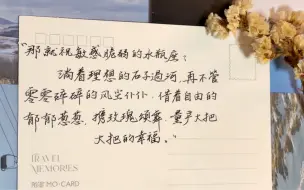 “那就祝敏感脆弱的水瓶座：
淌着理想的石子过河，再不管
零零碎碎的风尘仆仆，借着自由的
郁郁葱葱，携玫瑰颂舞，量产大把
大把的幸福。”
TRAVEL
MEMORIES
MO·CARD